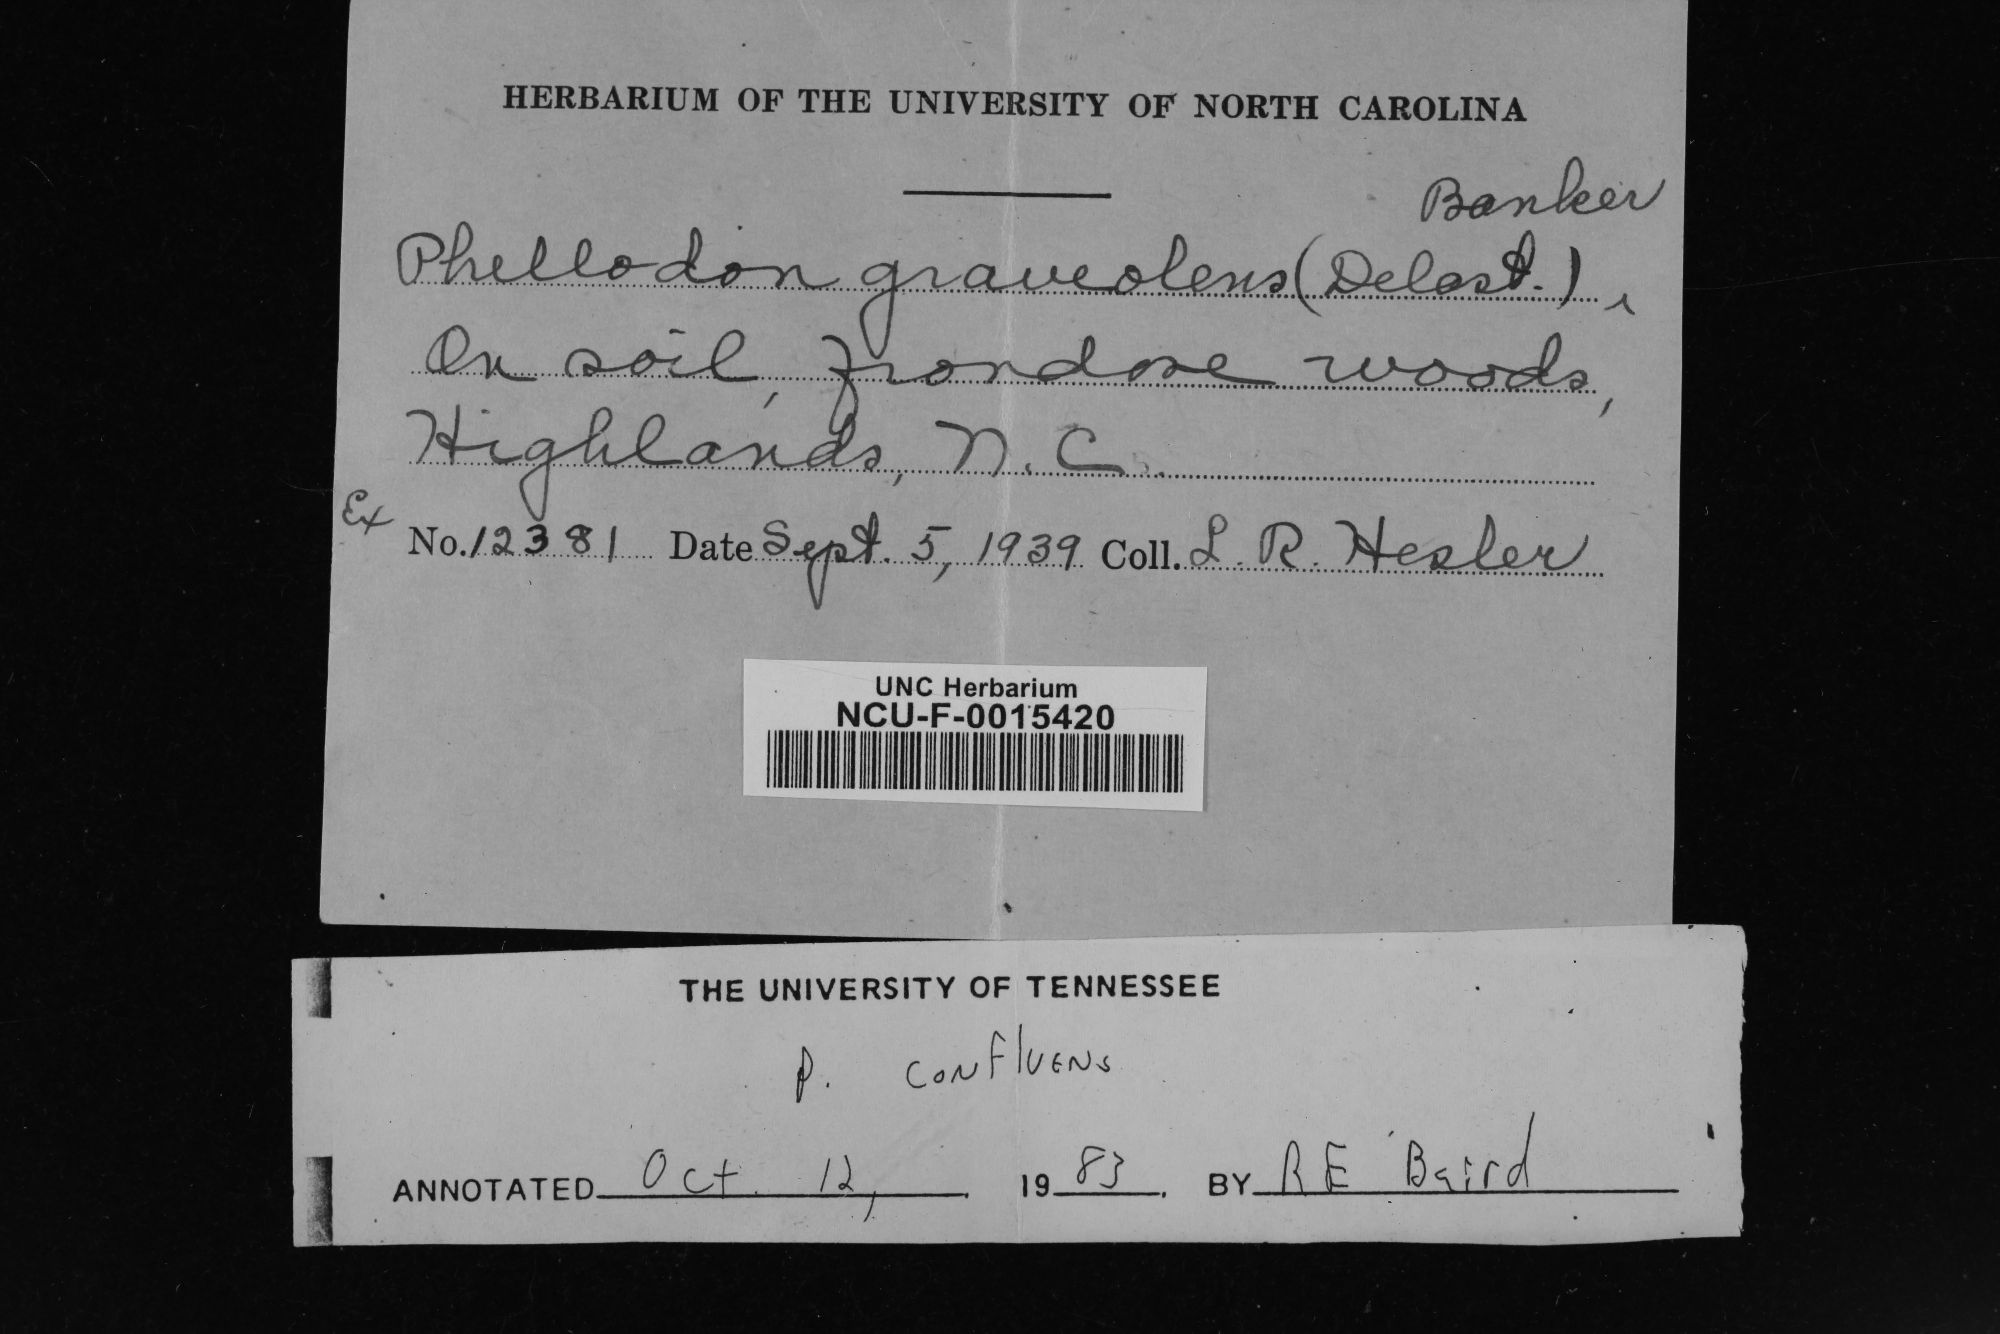 HERBARIUM OF THE UNIVERSITY OF NORTH CAROLINA
Banker
Phellodon graveolens (Delast.)
On soil, frondose woods,
Highlands, N.C.
Ex No. 12381 Date Sept. 5, 1939 Coll. L. R. Hesler
UNC Herbarium
NCU-F-0015420
THE UNIVERSITY OF TENNESSEE
P. confluens
ANNOTATED Oct. 12, 1983. BY RE Baird